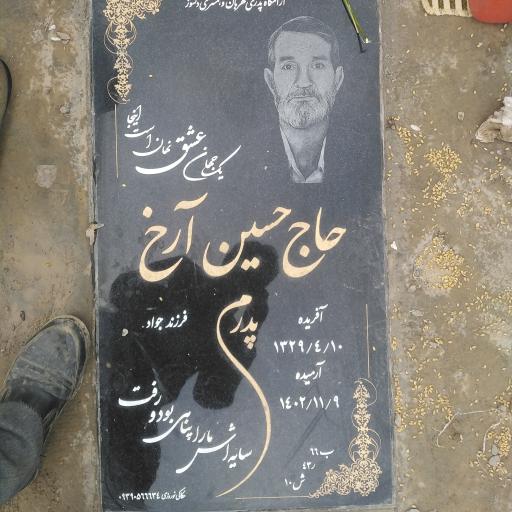 آرامگاه پدری مهربان و همسری دلسوز
یک جهان عشق نهان است اینجا
حاج حسین آرخ
فرزند جواد
پدرم
آفریده
۱۳۲۹/۴/۱۰
آرمیده
۱۴۰۲/۱۱/۹
سایه اش ما را پناهی بود و رفت
ب ۶۶
ر ۴۳
ش ۱۰
۰۹۳۹۰۵۶۶۶۳۴